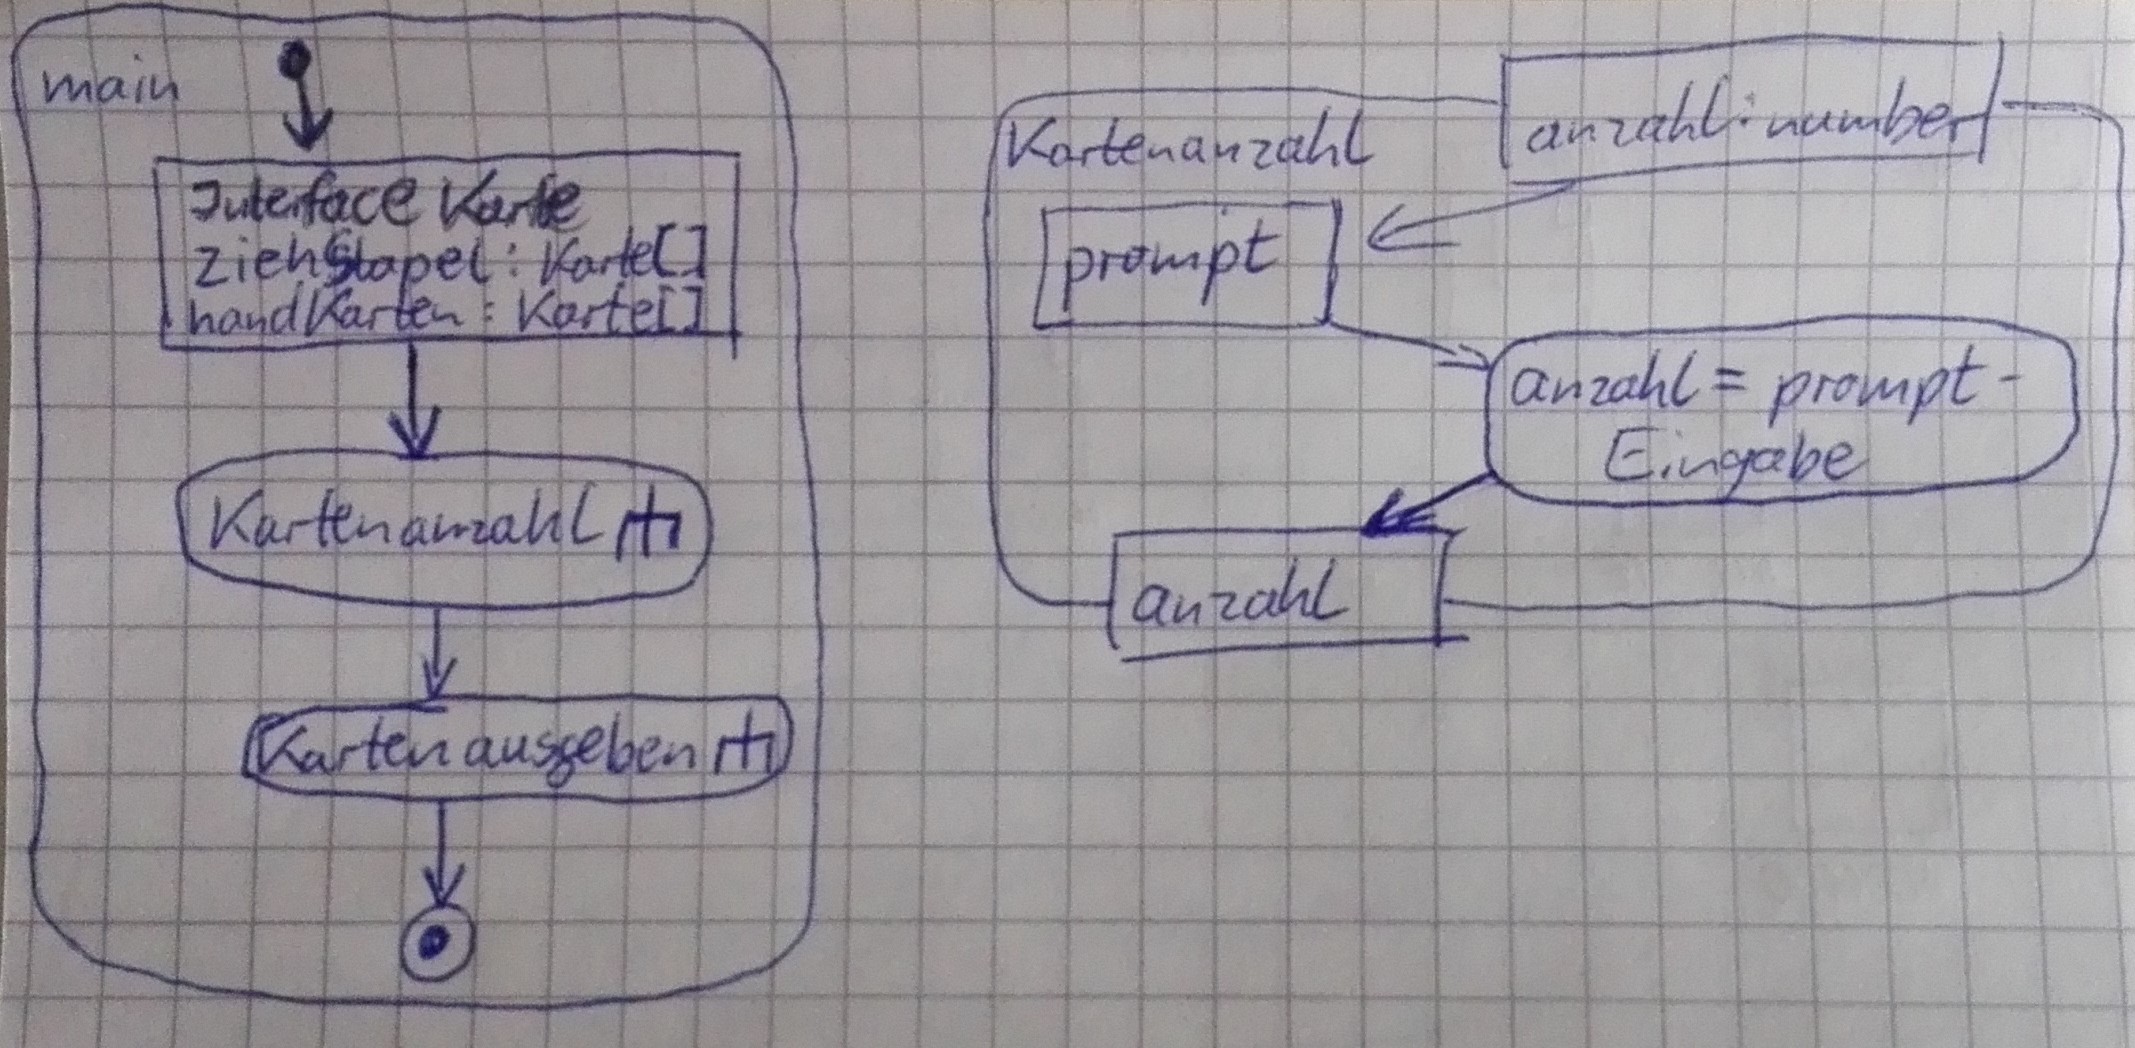 main
Interface Karte
ziehStapel : Karte[]
handKarten : Karte[]
Kartenanzahl
Kartenausgeben
Kartenanzahl
anzahl : number
prompt
anzahl = prompt-
Eingabe
anzahl